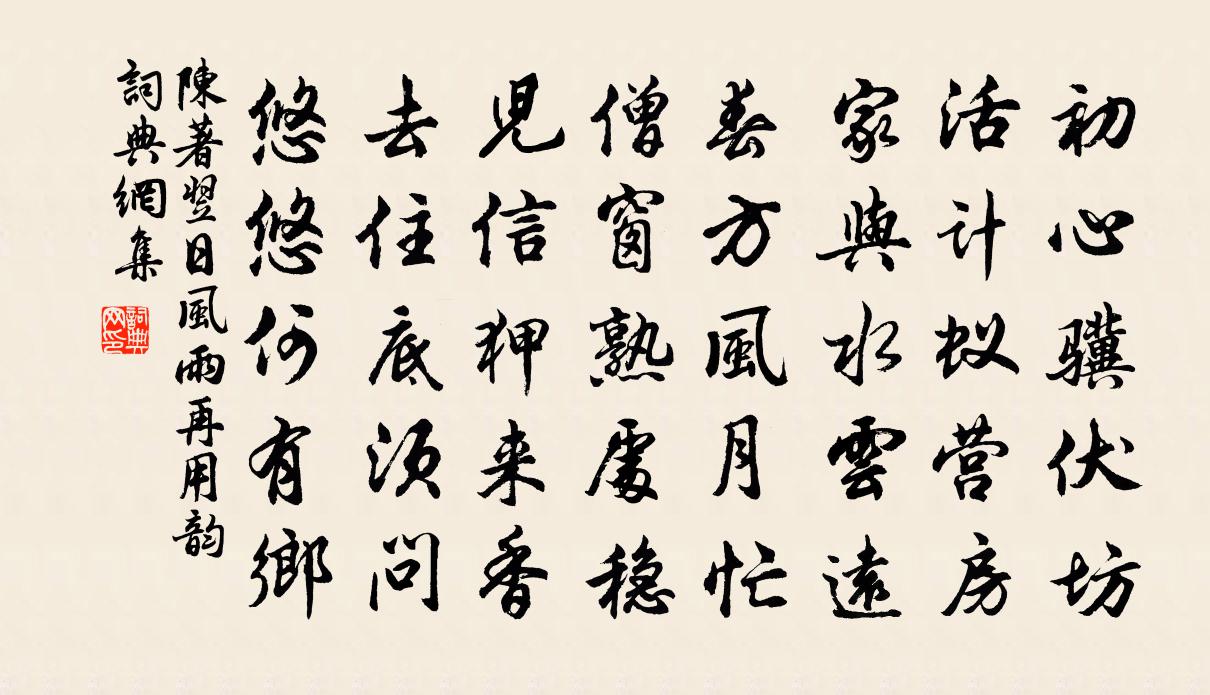 初心驥伏坊
活计蚁营房
家與水雲遠
春方風月忙
僧窗熟處穏
児信狎来香
去住底须问
悠悠何有鄉
陳著翌日風雨再用韵
詞典網集
詞典
网印